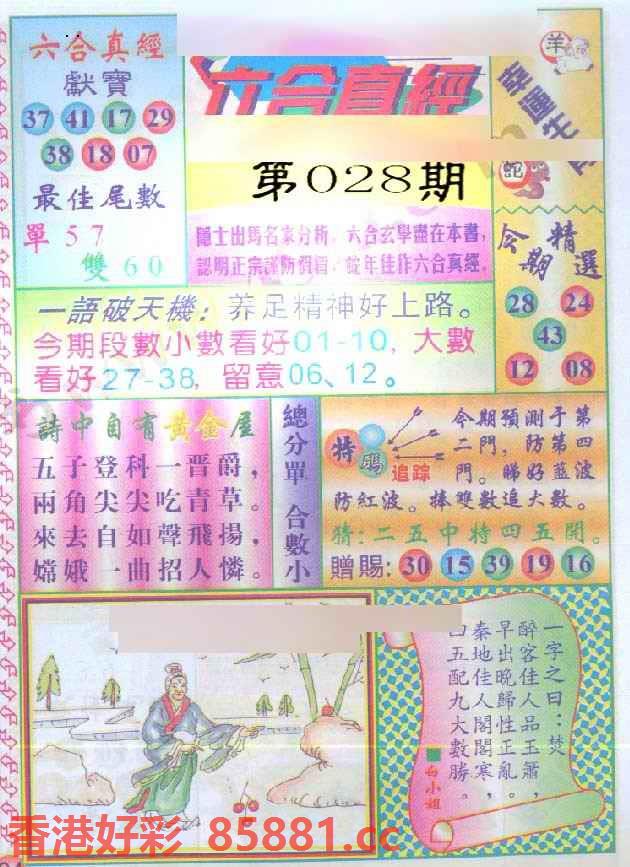 六合真經
獻寶
37 41 17 29
38 18 07
最佳尾數
單 5 7
雙 6 0
六合真經
第028期
隱士出馬名家分析，六合玄學盡在本書，
認明正宗謹防假冒，
年佳作六合真經。
羊
蛇
幸運生
今期精選
28 24
43
12 08
一語破天機：养足精神好上路。
今期段數小數看好01-10，大數
看好27-38，留意06、12。
詩中自有黃金屋
五子登科一晋爵，
兩角尖尖吃青草。
來去自如聲飛揚，
嫦娥一曲招人憐。
總分單 合數小
特碼
追踪
今期預測于第
二門，防第四
門。睇好藍波
防紅波。捧雙數追大數。
猜：二五中特四五開。
贈賜：30 15 39 19 16
一字之曰：焚
醉客佳人品玉蕭，
早出晚歸性正亂，
秦地佳人閣閣寒。
四五配九大數勝。
白小姐
香港好彩 85881.cc